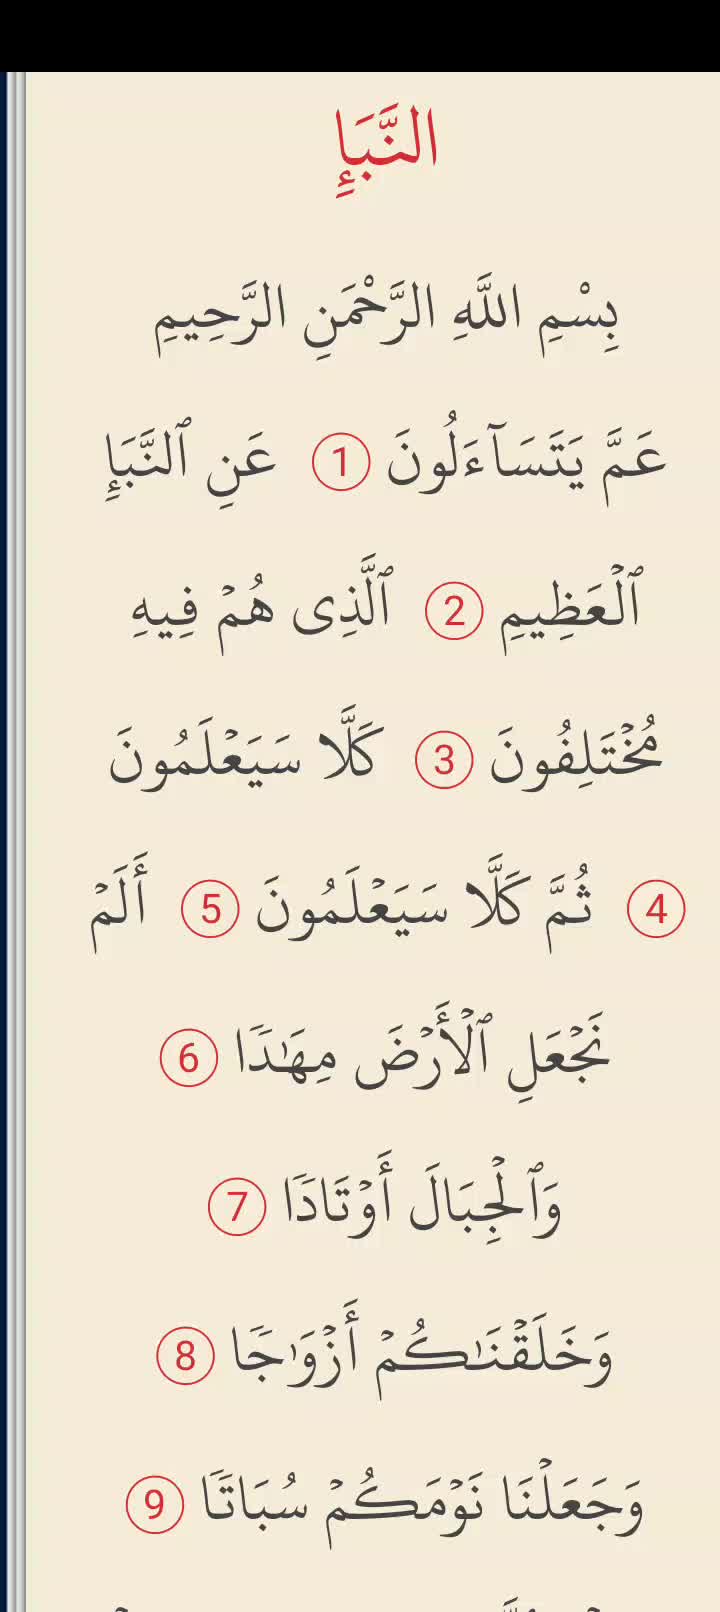 النَّبَإِ
بِسْمِ اللَّهِ الرَّحْمَنِ الرَّحِيمِ
عَمَّ يَتَسَآءَلُونَ 1 عَنِ ٱلنَّبَإِ
ٱلْعَظِيمِ 2 ٱلَّذِى هُمْ فِيهِ
مُخْتَلِفُونَ 3 كَلَّا سَيَعْلَمُونَ
4 ثُمَّ كَلَّا سَيَعْلَمُونَ 5 أَلَمْ
نَجْعَلِ ٱلْأَرْضَ مِهَٰدًا 6
وَٱلْجِبَالَ أَوْتَادًا 7
وَخَلَقْنَٰكُمْ أَزْوَٰجًا 8
وَجَعَلْنَا نَوْمَكُمْ سُبَاتًا 9